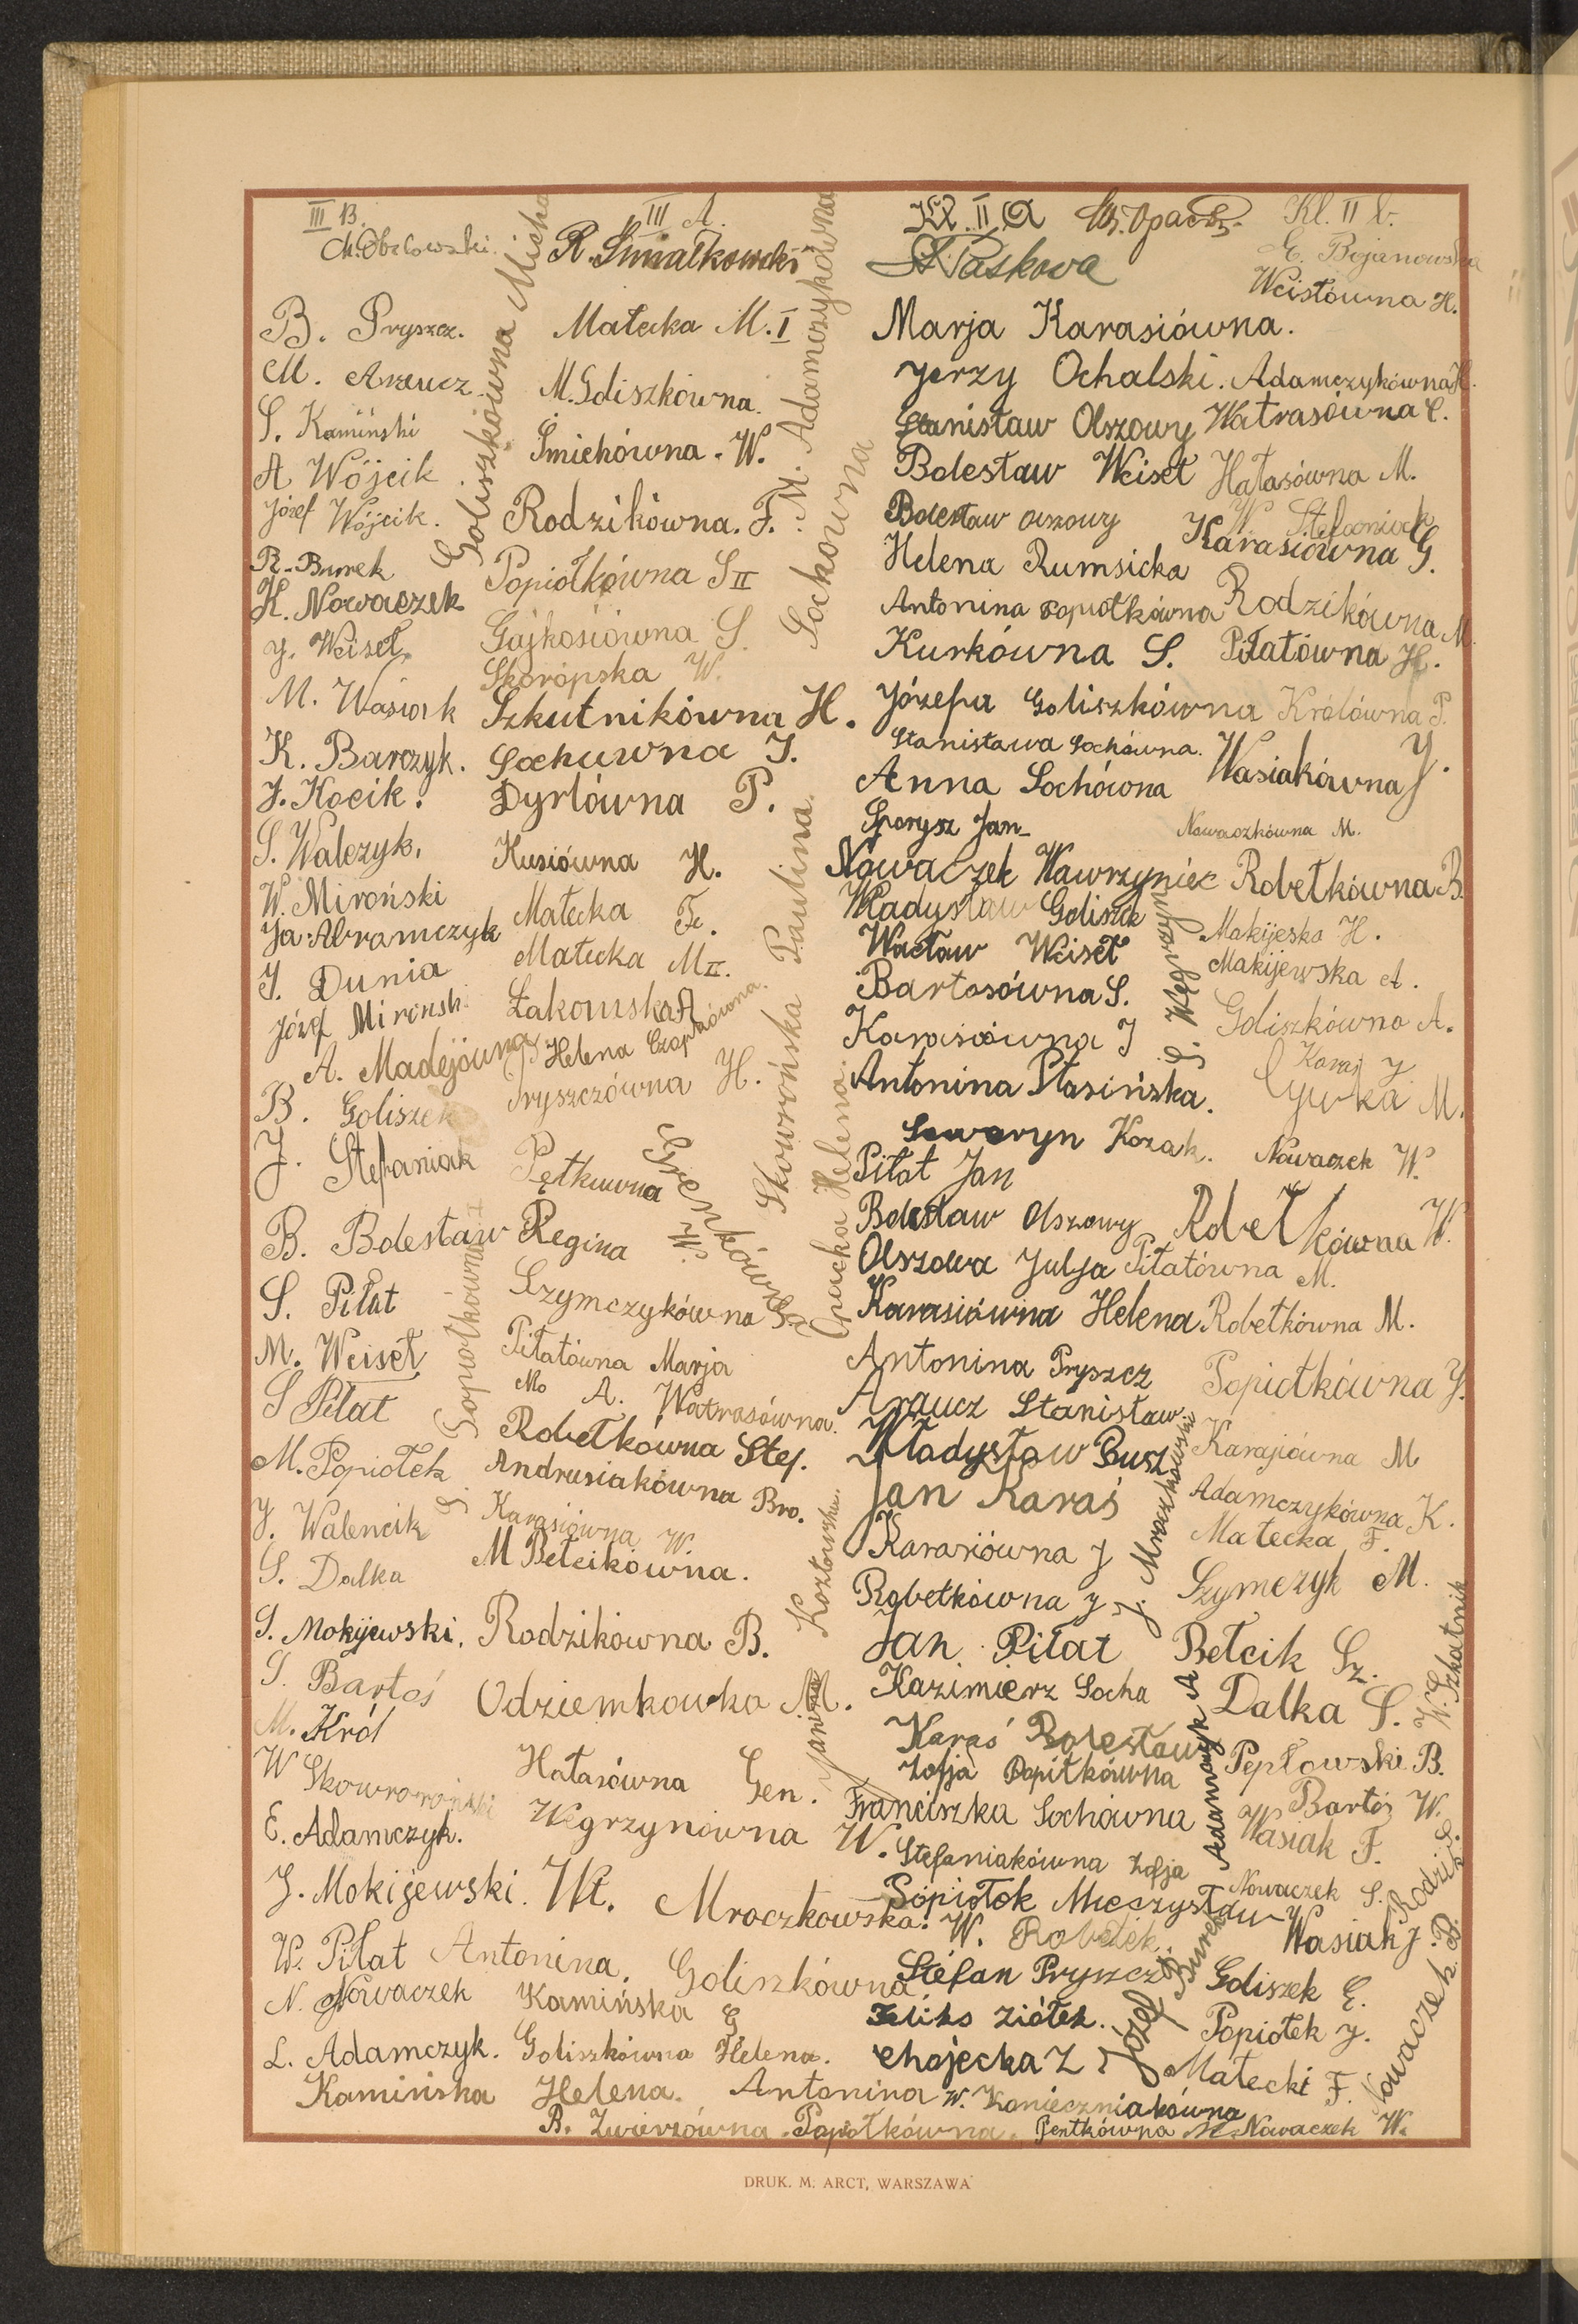 III B.
M. Obelowski.
B. Pryszcz.
M. Araucz.
S. Kamiński
A Wójcik
Józef Wójcik.
R. Burek
K. Nowaczek
J. Weiseł.
M. Wasiak
K. Barczyk.
J. Kocik.
S. Walczyk.
W. Miroński
Ja. Abramczyk
J. Dunia
Józef Mirońsk
A. Madejówna
B. Goliszek
J. Stefaniak
B. Bolesław
S. Piłat
M. Weiseł
S Piłat
M. Popiołek
J. Walencik
S. Dalka
S. Mokijewski.
S. Bartoś
M. Król
W Skowroński
E. Adamczyk.
J. Mokijewski.
W. Piłat
N. Nowaczek
L. Adamczyk.
Goliszkówna Micha
S. Popiołkówna I
III A.
R. Śmiałkowski
Małecka M. I
M. Goliszkówna.
Śmichówna. W.
Rodzikówna. F.
Popiołkówna S II
Gajkosiówna S.
Skoropska W.
Szkutnikówna H.
Sochuwna J.
Dyrłówna P.
Kusiówna H.
Małecka Fe.
Małecka M II.
Łakomska A
Helena Czapkówna.
Pryszczówna H.
Pętkuwna
Regina
Szymczykówna S.
Piłatówna Marja
A. Watrasówna.
Robełkówna Stef.
Andrusiakówna Bro.
Karasiówna W.
M Bełcikówna.
Rodzikówna B.
Odziemkowka M.
Hałasówna Gen.
Węgrzynówna W.
Wł. Mroczkowska.
Antonina. Goliszkówna
Kamińska G
Goliszkówna Helena.
Kamińska Helena.
M. Adamczykówna
Sochówna
Skowrońska Paulina.
Opacka Helena.
Janina Kozłowska.
Kl. II A W. Opack
Paskowa
Marja Karasiówna.
Jerzy Ochalski.
Stanisław Olszowy
Bolesław Weiseł
Bolesław Olszowy
Helena Rumsicka
Antonina Popiołkówna
Kurkówna S.
Józefa Goliszkówna
Stanisława Sochówna.
Anna Sochówna
Sporysz Jan
Nowaczek Wawrzyniec
Władysław Goliszek
Wacław Weiseł
Bartosówna S.
Karasiówna J
Antonina Stasińska.
Seweryn Kozak.
Piłat Jan
Bolesław Olszowy
Olszowa Julja
Karasiówna Helena
Antonina Pryszcz
Araucz Stanisław
Władysław Busz
Jan Karaś
Karasiówna J
Robełkówna J
Jan Piłat
Kazimierz Socha
Karaś Bolesław
Zofja Popiłkówna
Franciszka Sochówna
Stefaniakówna Zofja
Popiołok Mieczysław
W. Robełek.
Stefan Pryszcz
Feliks Ziółek.
Chojecka Z
Antonina W. Konieczniakówna
B. Zwierzówna. Popiołkówna. Pentkówna M. Nowaczek W.
J. Mroczkowski
Adamczyk A
Józef Burek
Kl. II b.
E. Bojanowska
Weisłówna H.
Adamczykówna H.
Watrasówna C.
Hałasówna M.
W Stefaniuck
Karasiówna G.
Rodzikówna M.
Piłatówna H.
Królówna P.
Wasiakówna J.
Nowaczkówna M.
Robełkówna B.
Makijeska H.
Makijewska A.
Goliszkówna A.
Karaś J
Cywka M.
Nowaczek W.
Robełkówna W.
Piłatówna M.
Robełkówna M.
Popiołkówna J.
Karasiówna M
Adamczykówna K.
Małecka F.
Szymczyk M.
Bełcik Sz.
Dalka S.
Pepłowski B.
Bartoś W.
Wasiak F.
Nowaczek S.
Wasiak J.
Goliszek E.
Popiołek J.
Małecki F.
W. Szkatnik
Rodzik S.
Nowaczek B.
DRUK. M. ARCT, WARSZAWA